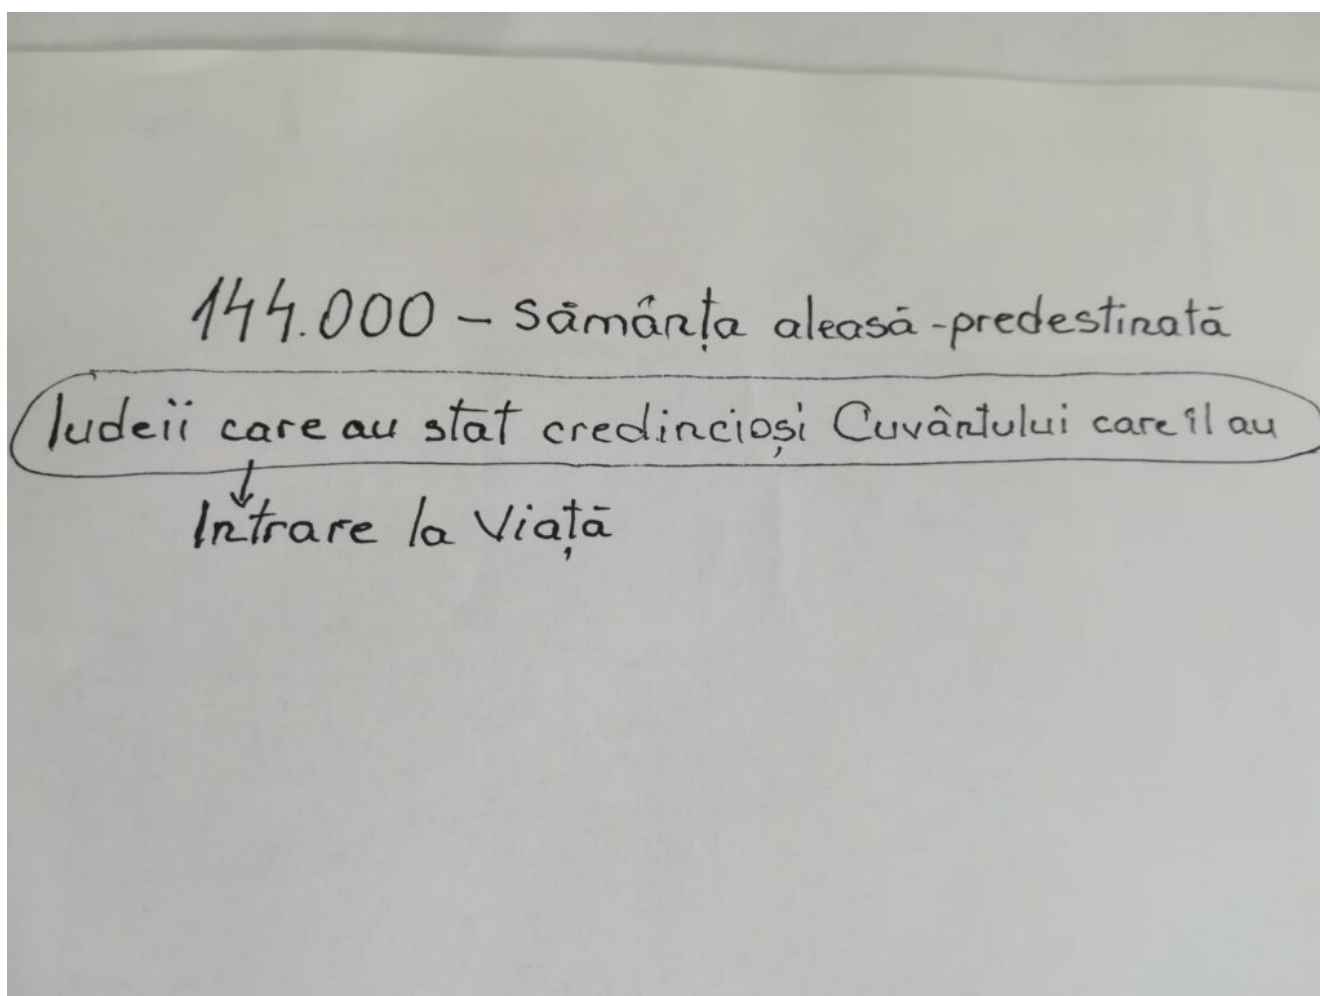 144.000 – Sămânța aleasă-predestinată
Iudeii care au stat credincioși Cuvântului care îl au
Intrare la Viață